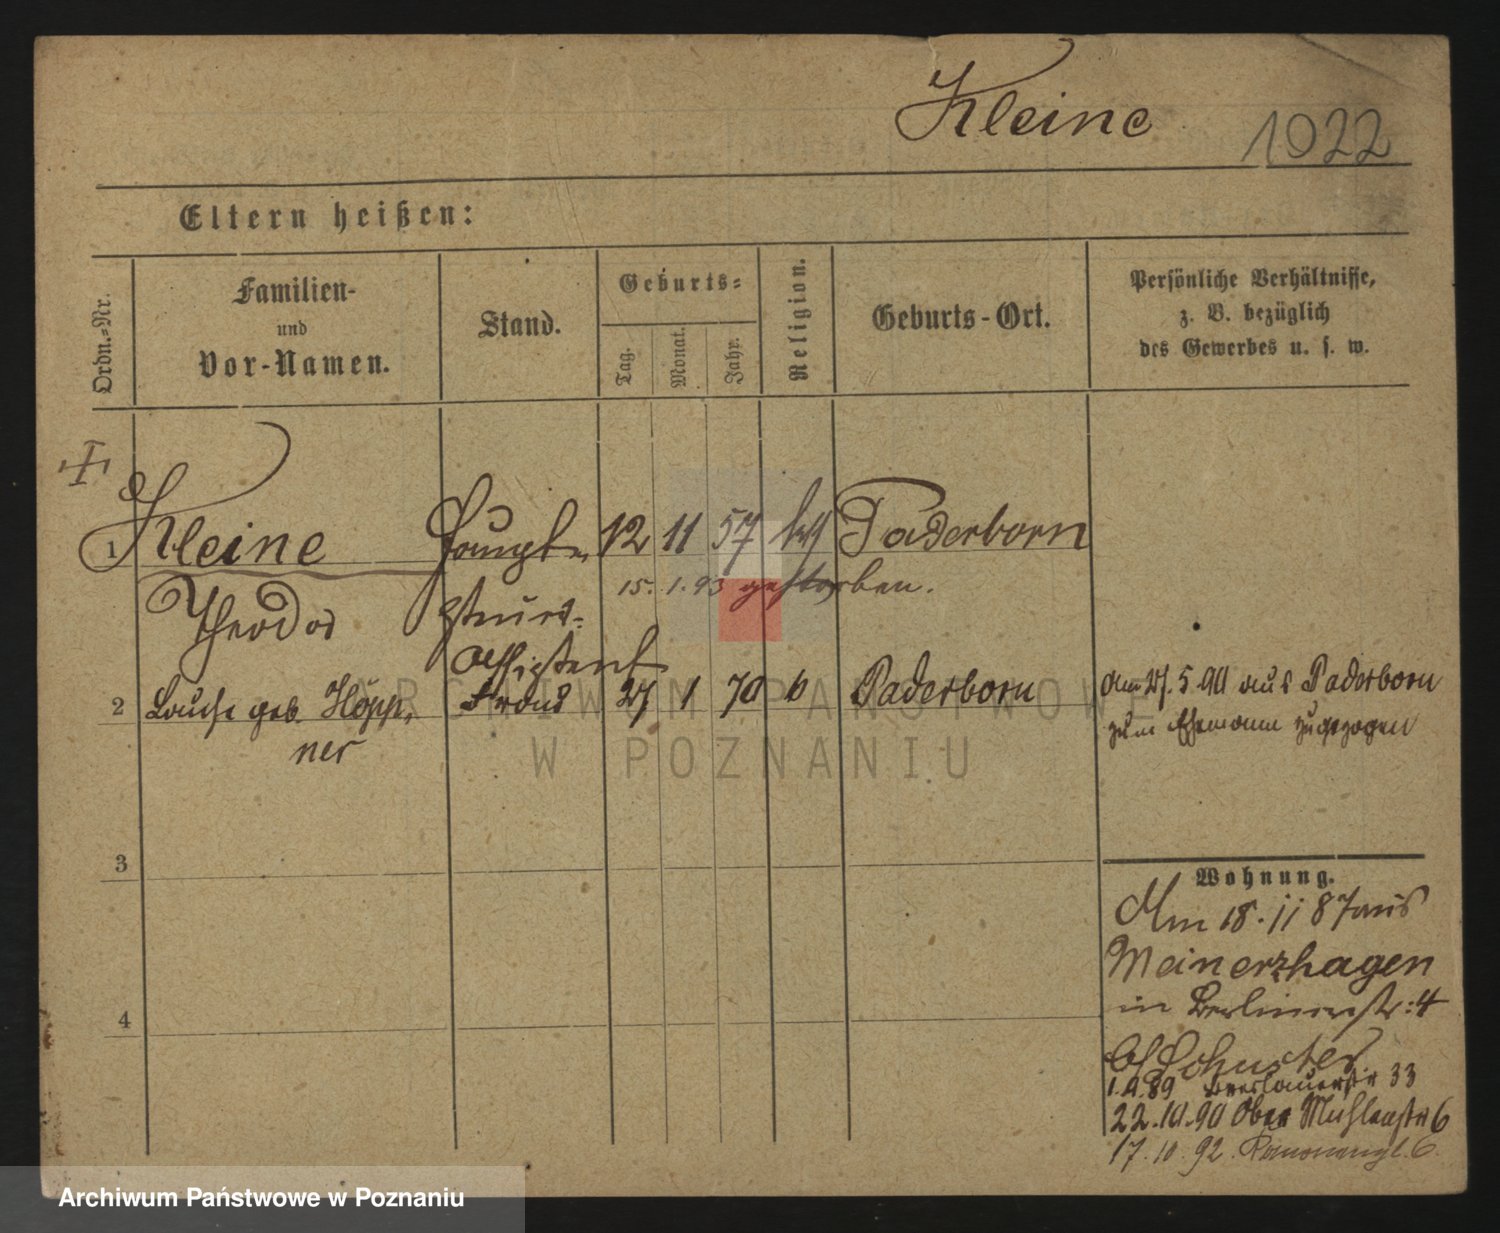 Kleine 1022
Eltern heißen:
Ordn.-Nr.
Familien-
und
Vor-Namen.
Stand.
Geburts-
Tag.
Monat.
Jahr.
Religion.
Geburts-Ort.
Persönliche Verhältnisse,
z. B. bezüglich
des Gewerbes u. s. w.
1 Kleine Haupt- 12 11 57 Paderborn
15. 1. 93 gestorben.
Theodor
Assistent
2 Louise geb. Höpp- 27 1 70 Paderborn
ner
Am 27. 5. 90 aus Paderborn
zum Ehemann zugezogen
3
4
Wohnung.
Am 18. 11 87 aus
Meinerzhagen
in Berlinerstr: 4
b/ Schuster
1.4.89 Breslauerstr 33
22.10.90 Ober Mühlenstr 6
17.10.92.
ARCHIWUM PAŃSTWOWE
W POZNANIU
Archiwum Państwowe w Poznaniu